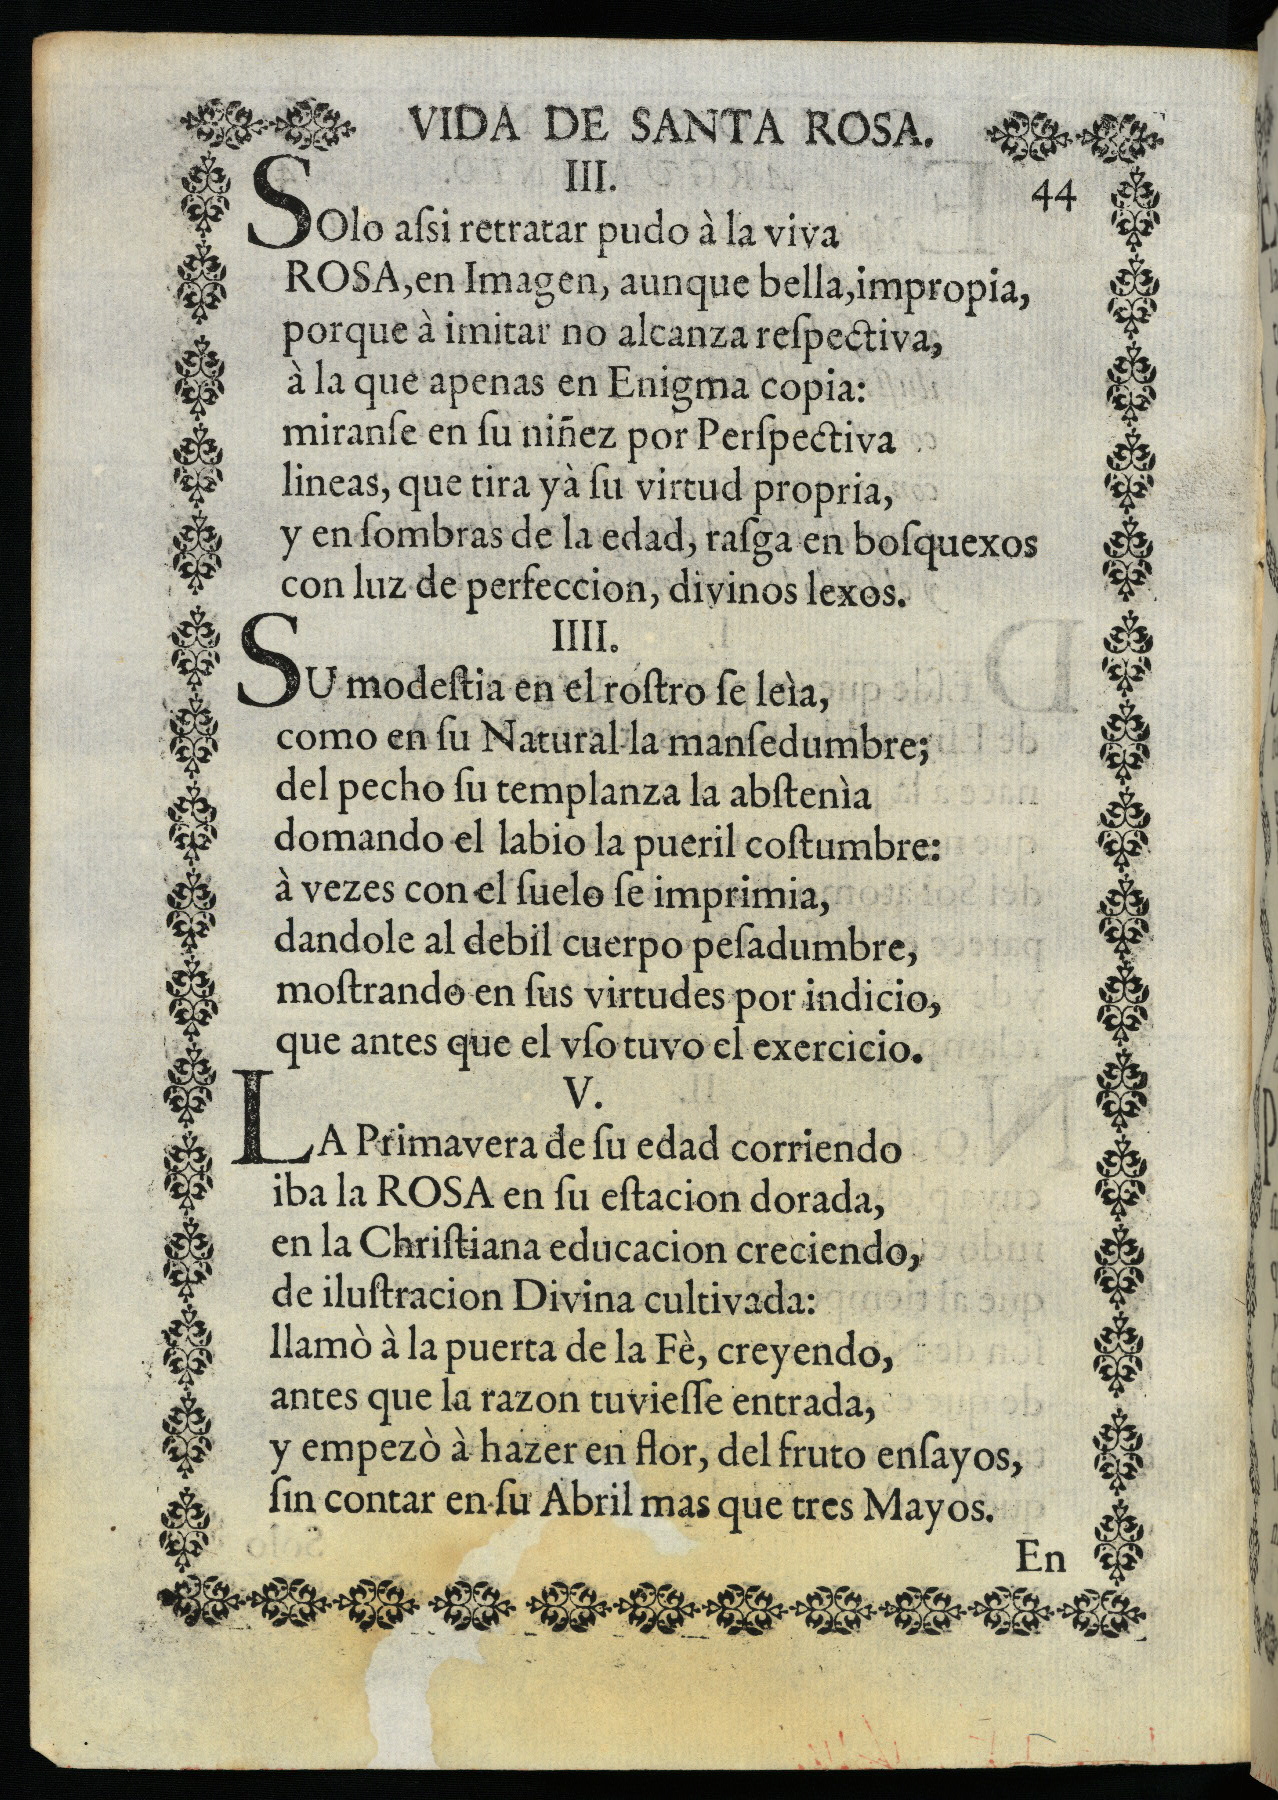 VIDA DE SANTA ROSA.
44
III.
SOlo aſsi retratar pudo à la viva
ROSA, en Imagen, aunque bella, impropia,
porque à imitar no alcanza reſpectiva,
à la que apenas en Enigma copia:
miranſe en ſu niñez por Perſpectiva
lineas, que tira yà ſu virtud propria,
y en ſombras de la edad, raſga en boſquexos
con luz de perfeccion, divinos lexos.
IIII.
SU modeſtia en el roſtro ſe leìa,
como en ſu Natural la manſedumbre;
del pecho ſu templanza la abſtenìa
domando el labio la pueril coſtumbre:
à vezes con el ſuelo ſe imprimia,
dandole al debil cuerpo peſadumbre,
moſtrando en ſus virtudes por indicio,
que antes que el vſo tuvo el exercicio.
V.
LA Primavera de ſu edad corriendo
iba la ROSA en ſu eſtacion dorada,
en la Chriſtiana educacion creciendo,
de iluſtracion Divina cultivada:
llamò à la puerta de la Fè, creyendo,
antes que la razon tuvieſſe entrada,
y empezò à hazer en flor, del fruto enſayos,
ſin contar en ſu Abril mas que tres Mayos.
En